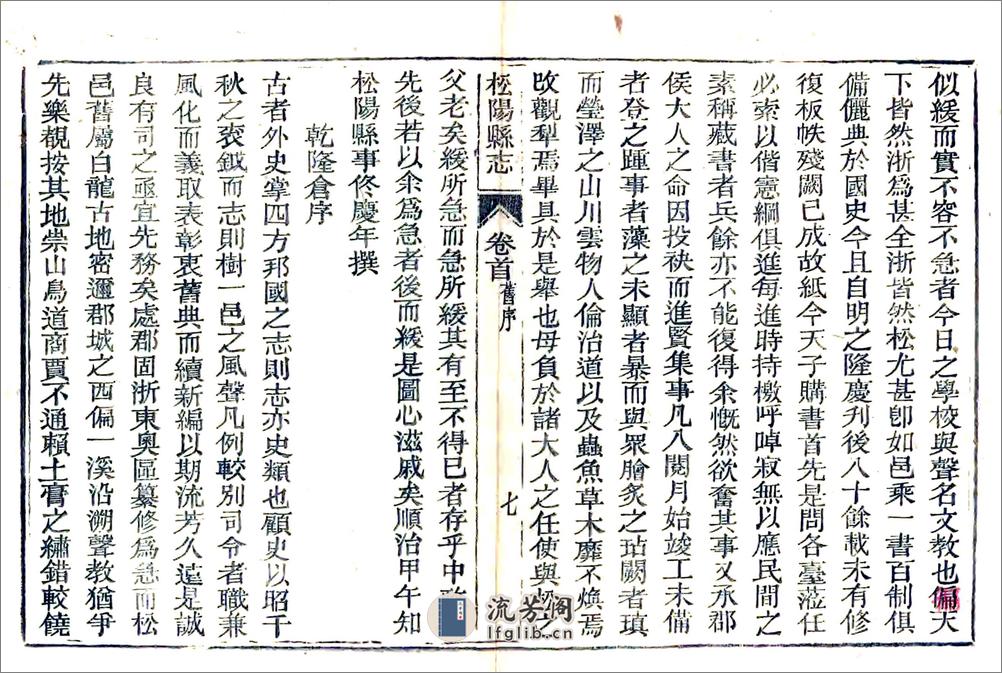 似緩而實不容不急者今日之學校與聲名文教也偏天
下皆然浙爲甚全浙皆然松尤甚卽如邑乘一書百制俱
備儷典於國史今且自明之隆慶刋後八十餘載未有修
復板帙殘闕已成故紙今天子購書首先是問各臺蒞任
必索以偕憲綱俱進每進時持檄呼啅寂無以應民間之
素稱藏書者兵餘亦不能復得余慨然欲奮其事又承郡
侯大人之命因投袂而進賢集事凡八閱月始竣工未備
者登之踵事者藻之未顯者暴而與衆膾炙之玷闕者瑱
而瑩澤之山川雲物人倫治道以及蟲魚草木靡不煥焉
改觀犁焉畢具於是舉也毋負於諸大人之任使與
松陽縣志
卷首
舊序
七
父老矣緩所急而急所緩其有至不得已者存乎中
先後若以余爲急者後而緩是圖心滋戚矣順治甲午知
松陽縣事佟慶年撰
乾隆倉序
古者外史掌四方邦國之志則志亦史類也顧史以昭千
秋之衮鉞而志則樹一邑之風聲凡例較別司令者職兼
風化而義取表彰衷舊典而續新編以期流芳久遠是誠
良有司之亟宜先務矣處郡固浙東奧區纂修爲急而松
邑舊屬白龍古地密邇郡城之西偏一溪沿溯聲教猶爭
先樂覩按其地崇山鳥道商賈不通賴土膏之繡錯較饒
流芳閣
lfglib.cn